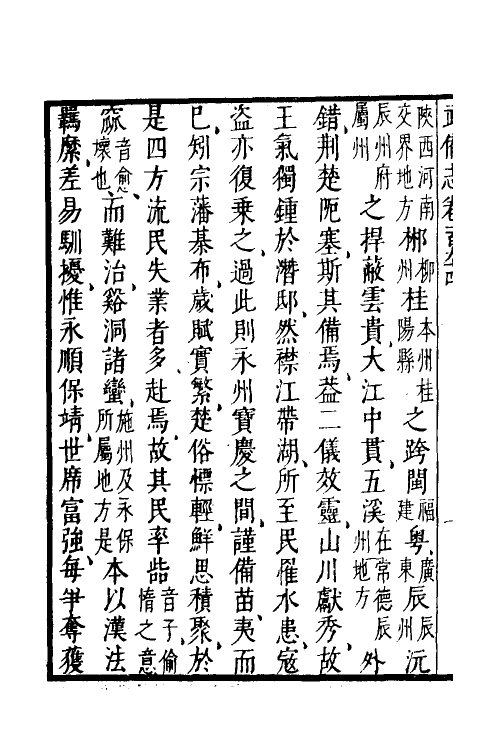 武備志卷
陜西河南交界地方郴柳州桂本州桂陽縣之跨閩福建粵廣東辰辰州沅
辰州府屬州之捍蔽雲貴大江中貫五溪在常德辰州地方外
錯荆楚阨塞斯其備焉葢二儀效靈山川獻秀故
王氣獨鍾於潛邸然襟江帶湖所至民罹水患寇
盗亦復乗之過此則永州寶慶之間謹備苗夷而
巳矧宗藩棊布歲賦實繁楚俗慓輕鮮思積聚於
是四方流民失業者多赴焉故其民率呰音子偷惰之意
窳音愈壞也而難治谿洞諸蠻施州及永保所屬地方是本以漢法
羈縻差易馴擾惟永順保靖世席富強每爭奪獲